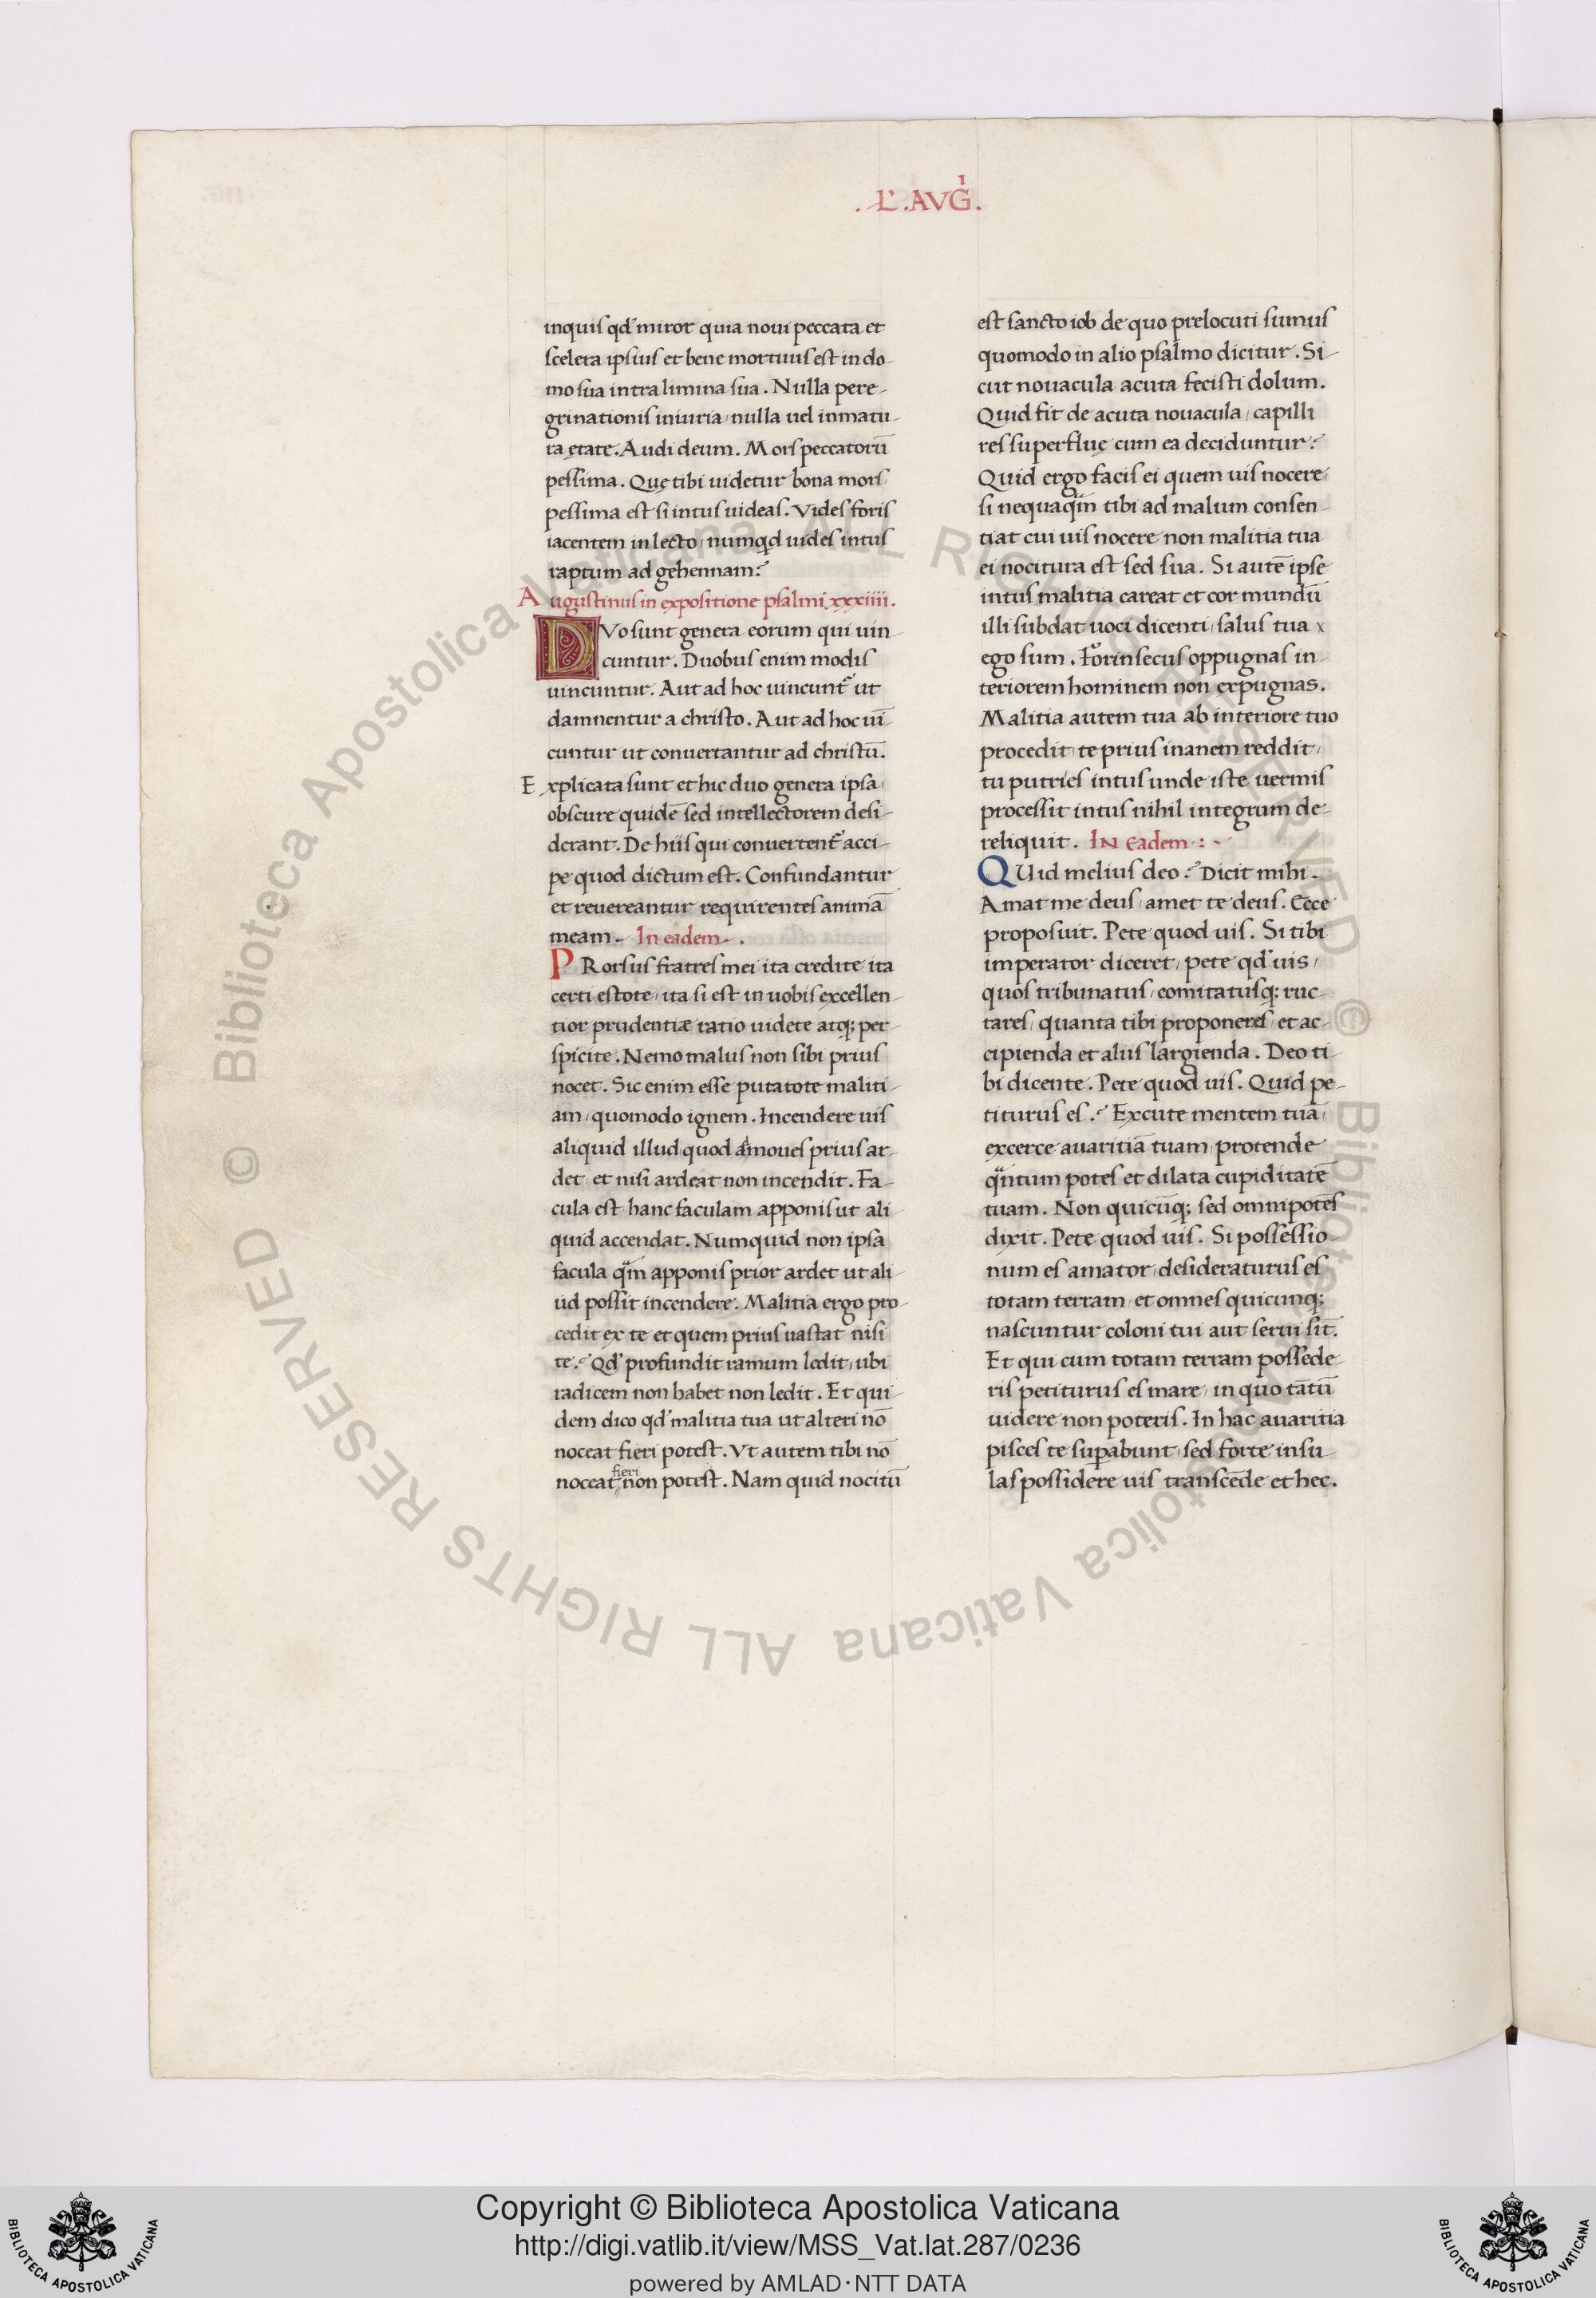 . L'. AVG̍.
inquis qd' miror quia noui peccata et
scelera ipsius et bene mortuus est in do-
mo sua intra limina sua. Nulla pere-
grinationis iniuria, nulla uel inmatu-
ra ętate. Audi deum. Mors peccatorū
pessima. Quę tibi uidetur bona mors,
pessima est si intus uideas. Vides foris
iacentem in lecto, numqd uides intus
raptum ad gehennam?
Augustinus in expositione psalmi xxxiiii.
DVo sunt genera eorum qui uin-
cuntur. Duobus enim modis
uincuntur. Aut ad hoc uincunt᷑ ut
damnentur a christo. Aut ad hoc uī-
cuntur ut conuertantur ad christū.
Explicata sunt et hic duo genera ipsa,
obscure quidē sed intellectorem desi-
derant. De hiis qui conuertent᷑ acci-
pe quod dictum est. Confundantur
et reuereantur requirentes animā
meam. In eadem.
PRorsus fratres mei ita credite ita
certi estote, ita si est in uobis excellen-
tior prudentiæ ratio uidete atq; per-
spicite. Nemo malus non sibi prius
nocet. Sic enim esse putatote maliti-
am, quomodo ignem. Incendere uis
aliquid illud quod āmoues prius ar-
det, et nisi ardeat non incendit. Fa-
cula est hanc faculam apponis ut ali-
quid accendat. Numquid non ipsa
facula qm̄ apponis prior ardet ut ali-
ud possit incendere. Malitia ergo pro-
cedit ex te et quem prius uastat nisi
te? Qd' profundit ramum ledit, ubi
radicem non habet non ledit. Et qui-
dem dico qd' malitia tua ut alteri nō
noceat fieri potest. Vt autem tibi nō
noceat fieri non potest. Nam quid nocitū
est sancto iob de quo prelocuti sumus
quomodo in alio psalmo dicitur. Si-
cut nouacula acuta fecisti dolum.
Quid fit de acuta nouacula, capilli
res superfluę cum ea deciduntur?
Quid ergo facis ei quem uis nocere,
si nequaqm̄ tibi ad malum consen-
tiat cui uis nocere non malitia tua
ei nocitura est sed sua. Si autē ipse
intus malitia careat et cor mundū
illi subdat uoci dicenti, salus tua
ego sum. Forinsecus oppugnas in-
teriorem hominem non expugnas.
Malitia autem tua ab interiore tuo
procedit, te prius inanem reddit,
tu putries intus unde iste uermis
processit intus nihil integrum de-
reliquit. IN Eadem :-
QUid melius deo? Dicit mihi.
Amat me deus, amet te deus. Ecce
proposuit. Pete quod uis. Si tibi
imperator diceret, pete qd' uis,
quos tribunatus, comitatusq; ruc-
tares, quanta tibi proponeres, et ac-
cipienda et aliis largienda. Deo ti-
bi dicente. Pete quod uis. Quid pe-
titurus es? Excute mentem tuā,
excerce auaritiā tuam, protende
qn̄tum potes et dilata cupiditatē
tuam. Non quicūq; sed omnipotēs
dixit. Pete quod uis. Si possessio-
num es amator, desideraturus es
totam terram, et omnes quicunq;
nascuntur coloni tui aut serui sīt.
Et qui cum totam terram possede-
ris petiturus es mare, in quo tātū
uidere non poteris. In hac auaritia
pisces te sup̱abunt, sed forte insu-
las possidere uis transcēde et hec.
© Biblioteca Apostolica Vaticana ALL RIGHTS RESERVED © Biblioteca Apostolica Vaticana ALL RIGHTS RESERVED
Copyright © Biblioteca Apostolica Vaticana
http://digi.vatlib.it/view/MSS_Vat.lat.287/0236
powered by AMLAD·NTT DATA
BIBLIOTECA APOSTOLICA VATICANA
BIBLIOTECA APOSTOLICA VATICANA